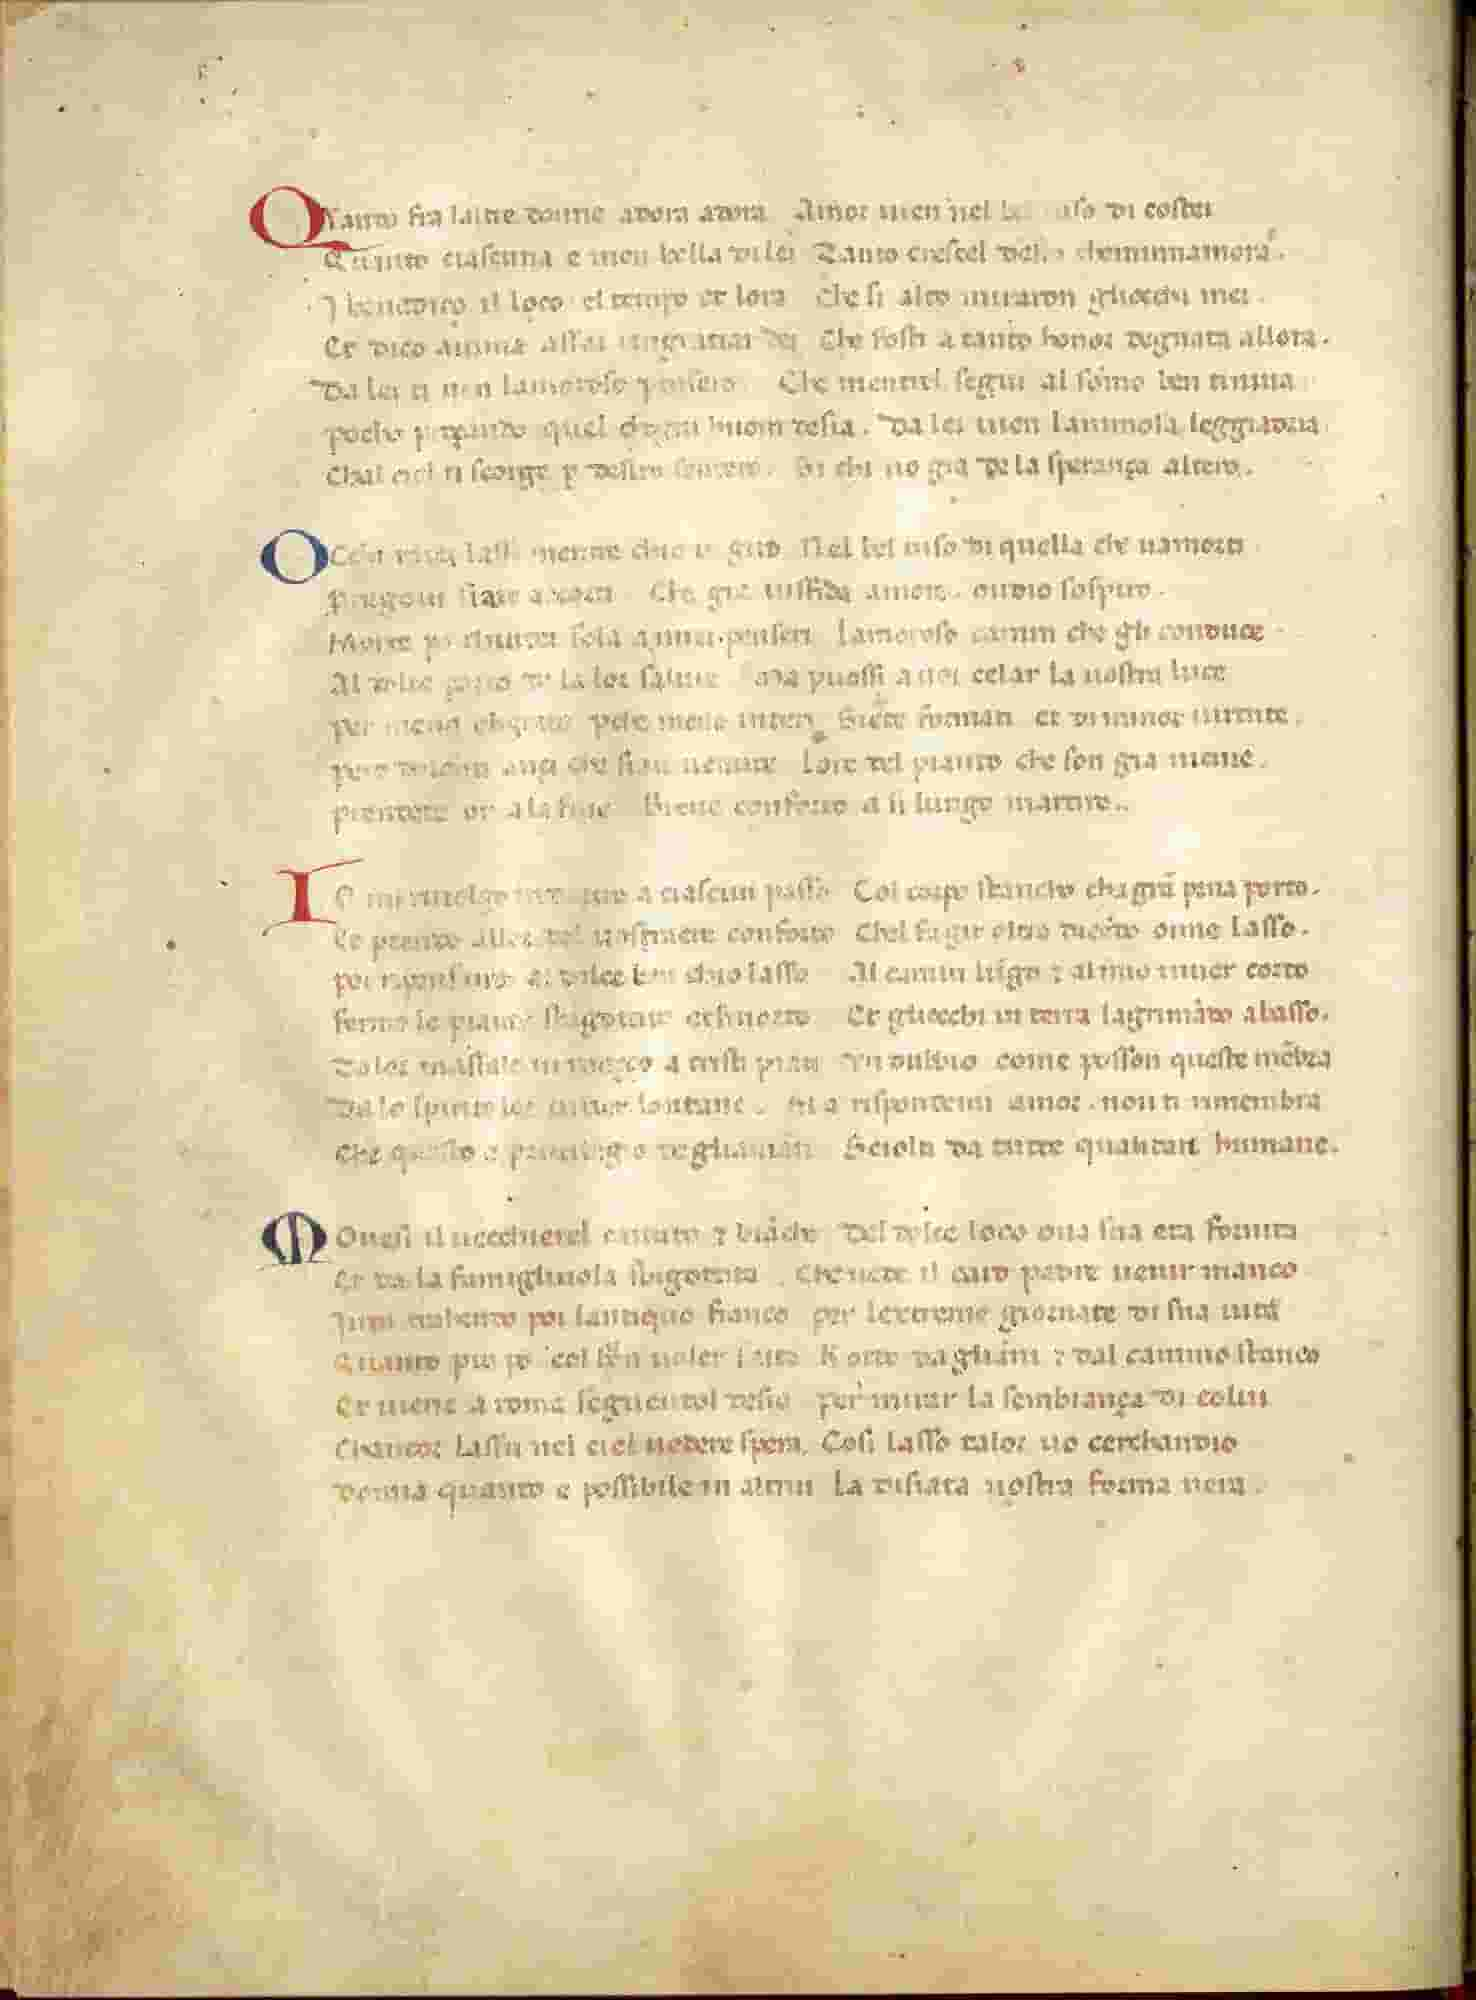 Quando fra laltre donne adora adora Amor uien nel bel uiso di costei
Quanto ciascuna e men bella di lei Tanto crescel desio chemminnamora.
I benedico il loco el tempo et lora Che si alto miraron gliocchi mei.
Et dico anima assai ringratiar dei Che fosti a tanto honor degnata allora.
Da lei ti uen lamoroso pensero Che mentrel segui al somo ben tinuia
pocho prezando quel chogni huom desia. Da lei uien lanimosa leggiadria
Chal ciel ti scorge p destro sentero. Si chi uo gia de la sperança altero.
Occhi miei lassi mentre chio ui giro Nel bel uiso di quella che uamorti
pregoui siate accorti Che gia uisfida amore. ondio sospiro.
Morte po chiuder sola amiei penseri Lamoroso camin che gli conduce
Al dolce porto de la lor salute Ma puossi a uoi celar la uostra luce
per meno obgetto perche meno interi Siete formati et di minor uirtute.
pero dolenti anzi che sian uenute Lore del pianto che son gia uicine.
prendete or a la fine Breue conforto a si lungo martiro.
Io mi riuolgo indietro a ciascun passo Col corpo stancho cha gran pena porto.
Et prendo allor del uostraere conforto Chel fa gir oltra dicendo oime lasso.
poi ripensando al dolce ben chio lasso Al camin lugo ⁊ al mio uiuer corto
fermo le piante sbigotito et smorto Et gliocchi in terra lagrimado abasso.
Talor massale in mezzo a tristi pianti Un dubbio come posson queste mebra
Da lo spirito lor uiuer lontane. Ma rispondemi amor. non ti rimembra
Che questo e priuilegio degliamanti Sciolti da tutte qualitati humane.
Mouesi il uecchierel canuto ⁊ biacho Del dolce loco oua sua eta fornita
Et da la famigliuola sbigottita. Che uede il caro padre uenir manco
Indi trahendo poi lantiquo fianco per lextreme giornate di sua uita
Quanto piu po col buon uoler saita Rotto dagliani ⁊ dal camino stanco
Et uiene a roma seguendol desio per mirar la sembiança di colui
Chancor lassu nel ciel uedere spera. Cosi lasso talor uo cerchandio
Donna quanto e possibile in altrui La disiata uostra forma uera.